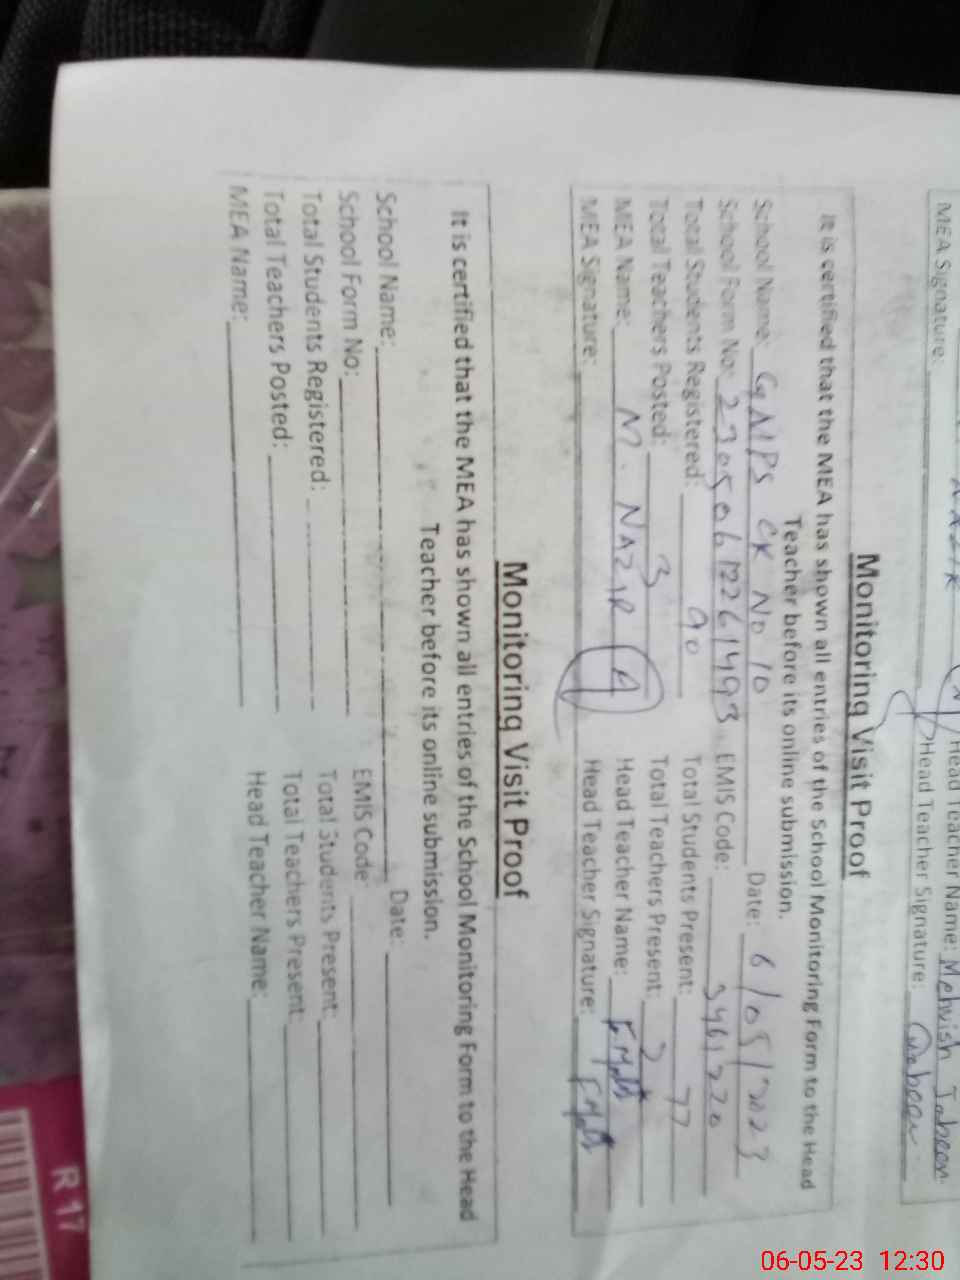 Head Teacher Name: Mehvish Jabeen
MEA Signature: Head Teacher Signature: Jabeen
Monitoring Visit Proof
It is certified that the MEA has shown all entries of the School Monitoring Form to the Head
Teacher before its online submission.
School Name: GMPS CK No 10 Date: 6/05/2023
School Form No: 23050612261493 EMIS Code: 3461220
Total Students Registered: 90 Total Students Present: 77
Total Teachers Posted: 3 Total Teachers Present: 2
MEA Name: M. NAZIR (A) Head Teacher Name:
MEA Signature: Head Teacher Signature:
Monitoring Visit Proof
It is certified that the MEA has shown all entries of the School Monitoring Form to the Head
Teacher before its online submission.
School Name: Date:
School Form No: EMIS Code:
Total Students Registered: Total Students Present:
Total Teachers Posted: Total Teachers Present:
MEA Name: Head Teacher Name:
R 17
06-05-23 12:30